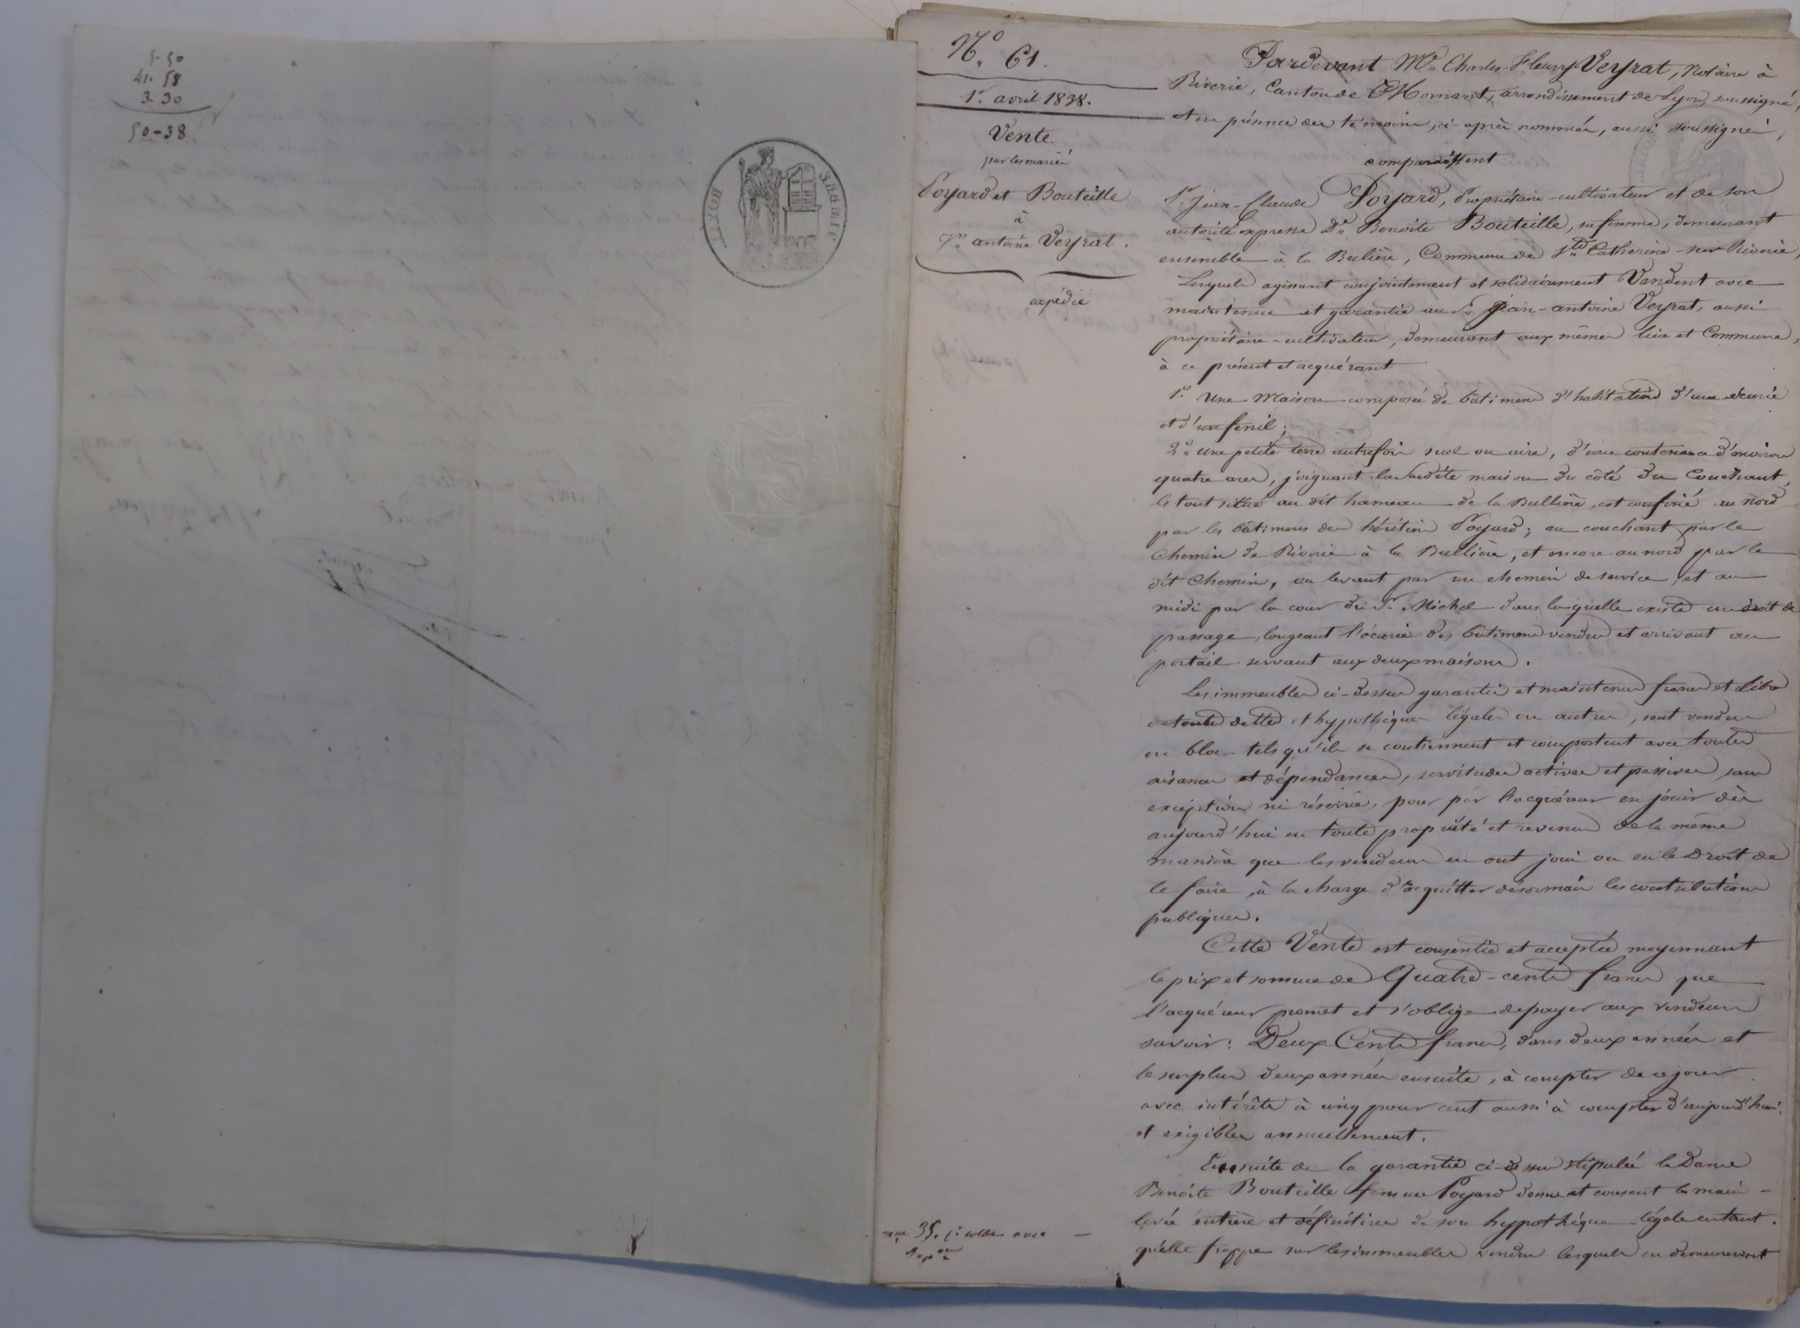 5.50
41.58
3.30
50-38
N.o 61.
1.er avril 1838.
Vente
par les mariés
Poyard et Bouteille
à
J.n antoine Veyrat.
expédié
Pardevant M.e Charles-Fleury Veyrat, Notaire à
Riverie, Canton de Mornant, arrondissement de Lyon, soussigné,
et en présence des témoins, ci-après nommés, aussi soussignés,
comparaissent
1.o Jean-Claude Poyard, Propriétaire-cultivateur et de son
autorité expresse D.e Benoite Bouteille, sa femme, demeurant
ensemble à la Bulière, Commune de S.te Catherine-sur-Riverie,
Lesquels agissant conjointement et solidairement Vendent avec
maintenue et garantie au S. Jean-antoine Veyrat, aussi
propriétaire-cultivateur, demeurant aux mêmes lieu et Commune,
à ce présent et acquérant
1.o Une Maison composée de bâtimens d'habitation d'une écurie
et d'un fenil;
2.o une petite terre autrefois suel ou aire, d'une contenance d'environ
quatre ares, joignant la susdite maison du côté du Couchant,
le tout situé au dit hameau de la Bullière, est confiné au nord
par les bâtimens des héritiers Poyard; au couchant par le
Chemin de Riverie à la Bullière, et encore au nord par le
dit Chemin, au levant par un chemin de service, et au
midi par la cour du S. Michel dans laquelle existe un droit de
passage, longeant l'écurie des bâtimens vendus et arrivant au
portail servant aux deux maisons.
Les immeubles ci-dessus garantis et maintenus francs et libres
de toutes dettes et hypothèques légales ou autres, sont vendus
en bloc tels qu'ils se contiennent et comportent avec toutes
aisances et dépendances, servitudes actives et passives, sans
exception ni réserve, pour par l'acquéreur en jouir dès
aujourd'hui en toute propriété et revenus de la même
manière que les vendeurs en ont joui ou eu le Droit de
le faire, à la charge d'acquitter désormais les contributions
publiques.
Cette Vente est consentie et acceptée moyennant
le prix et somme de Quatre-cents francs que
l'acquéreur promet et s'oblige de payer aux vendeurs
savoir: Deux Cents francs, dans deux années et
le surplus deux années ensuite, à compter de ce jour
avec intérêts à cinq pour cent aussi à compter d'aujourd'hui,
et exigibles annuellement.
Ensuite de la garantie ci-dessus stipulée la Dame
Benoite Bouteille femme Poyard donne et consent la main-
levée entière et définitive de son hypothèque légale en tant
qu'elle frappe sur les immeubles vendus lesquels en demeureront
35. solde avec